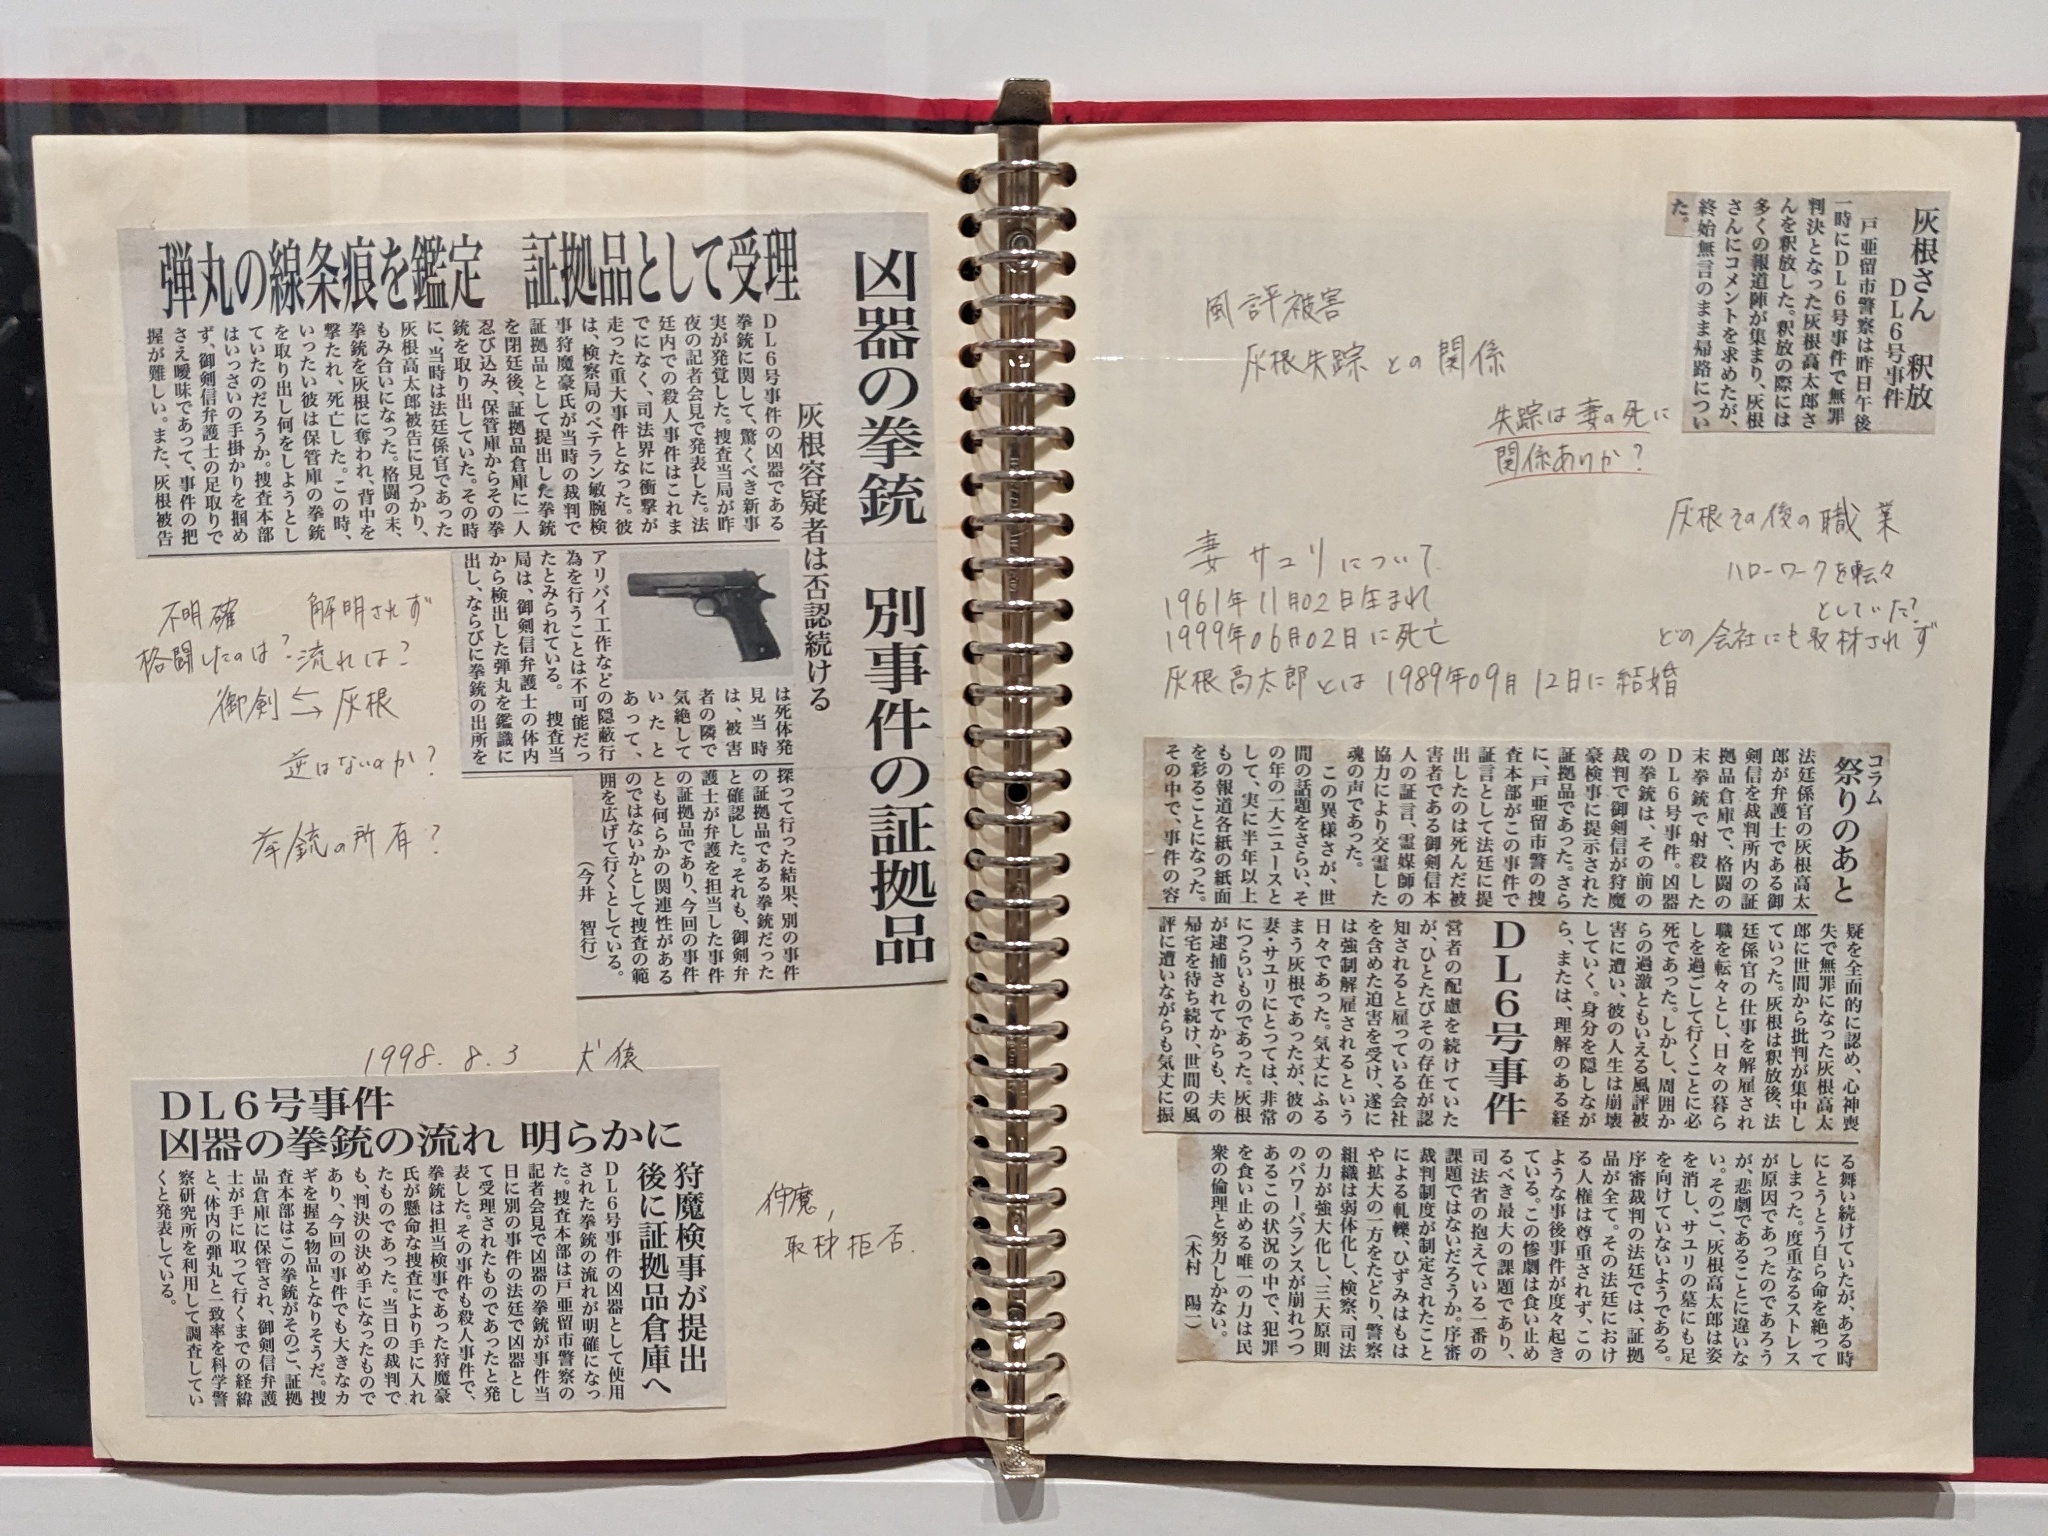 凶器の拳銃 別事件の証拠品
灰根容疑者は否認続ける
弾丸の線条痕を鑑定 証拠品として受理
DL6号事件の凶器である
拳銃に関して、驚くべき新事
実が発覚した。捜査当局が昨
夜の記者会見で発表した。法
廷内での殺人事件はこれま
でになく、司法界に衝撃が
走った重大事件となった。彼
は、検察局のベテラン敏腕検
事狩魔豪氏が当時の裁判で
証拠品として提出した拳銃
を閉廷後、証拠品倉庫に一人
忍び込み、保管庫からその拳
銃を取り出していた。その時
に、当時は法廷係官であった
灰根高太郎被告に見つかり、
もみ合いになった。格闘の末、
拳銃を灰根に奪われ、背中を
撃たれ、死亡した。この時、
いったい彼は保管庫の拳銃
を取り出し何をしようとし
ていたのだろうか。捜査本部
はいっさいの手掛かりを掴め
ず、御剣信弁護士の足取りで
さえ曖昧であって、事件の把
握が難しい。また、灰根被告
は死体発
見当時
は、被害
者の隣で
気絶して
いたと
あって、
アリバイ工作などの隠蔽行
為を行うことは不可能だっ
たとみられている。 捜査当
局は、御剣信弁護士の体内
から検出した弾丸を鑑識に
出し、ならびに拳銃の出所を
探って行った結果、別の事件
の証拠品である拳銃だった
と確認した。それも、御剣弁
護士が弁護を担当した事件
の証拠品であり、今回の事件
とも何らかの関連性がある
のではないかとして捜査の範
囲を広げて行くとしている。
（今井 智行）
不明確 解明されず
格闘したのは? 流れは?
御剣⇆灰根
逆はないのか?
拳銃の所有?
1998.8.3 犬猿
DL6号事件
凶器の拳銃の流れ 明らかに
狩魔検事が提出
後に証拠品倉庫へ
DL6号事件の凶器として使用
された拳銃の流れが明確になっ
た。捜査本部は戸亜留市警察の
記者会見で凶器の拳銃が事件当
日に別の事件の法廷で凶器とし
て受理されたものであったと発
表した。その事件も殺人事件で、
拳銃は担当検事であった狩魔豪
氏が懸命な捜査により手に入れ
たものであった。当日の裁判で
も、判決の決め手になったもので
あり、今回の事件でも大きなカ
ギを握る物品となりそうだ。捜
査本部はこの拳銃がそのご、証拠
品倉庫に保管され、御剣信弁護
士が手に取って行くまでの経緯
と、体内の弾丸と一致率を科学警
察研究所を利用して調査してい
くと発表している。
狩魔,
取材拒否.
灰根さん 釈放
DL6号事件
戸亜留市警察は昨日午後
一時にDL6号事件で無罪
判決となった灰根高太郎さ
んを釈放した。釈放の際には
多くの報道陣が集まり、灰根
さんにコメントを求めたが、
終始無言のまま帰路につい
た。
風評被害
灰根失踪との関係
失踪は妻の死に
関係ありか?
灰根その後の職業
ハローワークを転々
としていた?
どの会社にも取材されず
妻 サユリについて
1961年11月02日生まれ
1999年06月02日に死亡
灰根高太郎とは 1989年09月12日に結婚
コラム
祭りのあと
DL6号事件
法廷係官の灰根高太
郎が弁護士である御
剣信を裁判所内の証
拠品倉庫で、格闘の
末拳銃で射殺した
DL6号事件。凶器
の拳銃は、その前の
裁判で御剣信が狩魔
豪検事に提示された
証拠品であった。さら
に、戸亜留市警の捜
査本部がこの事件で
証言として法廷に提
出したのは死んだ被
害者である御剣信本
人の証言、霊媒師の
協力により交霊した
魂の声であった。
この異様さが、世
間の話題をさらい、そ
の年の一大ニュースと
して、実に半年以上
もの報道各紙の紙面
を彩ることになった。
その中で、事件の容
疑を全面的に認め、心神喪
失で無罪になった灰根高太
郎に世間から批判が集中し
ていった。灰根は釈放後、法
廷係官の仕事を解雇され
職を転々とし、日々の暮ら
しを過ごして行くことに必
死であった。しかし、周囲か
らの過激ともいえる風評被
害に遭い、彼の人生は崩壊
していく。身分を隠しなが
ら、または、理解のある経
営者の配慮を続けていた
が、ひとたびその存在が認
知されると雇っている会社
を含めた迫害を受け、遂に
は強制解雇されるという
日々であった。気丈にふる
まう灰根であったが、彼の
妻・サユリにとっては、非常
につらいものであった。灰根
が逮捕されてからも、夫の
帰宅を待ち続け、世間の風
評に遭いながらも気丈に振
る舞い続けていたが、ある時
にとうとう自ら命を絶って
しまった。度重なるストレス
が原因であったのであろう
が、悲劇であることに違いな
い。そのご、灰根高太郎は姿
を消し、サユリの墓にも足
を向けていないようである。
序審裁判の法廷では、証拠
品が全て。その法廷におけ
る人権は尊重されず、この
ような事後事件が度々起き
ている。この惨劇は食い止め
るべき最大の課題であり、
司法省の抱えている一番の
課題ではないだろうか。序審
裁判制度が制定されたこと
による軋轢、ひずみはもは
や拡大の一方をたどり、警察
組織は弱体化し、検察、司法
の力が強大化し、三大原則
のパワーバランスが崩れつつ
あるこの状況の中で、犯罪
を食い止める唯一の力は民
衆の倫理と努力しかない。
（木村 陽二）